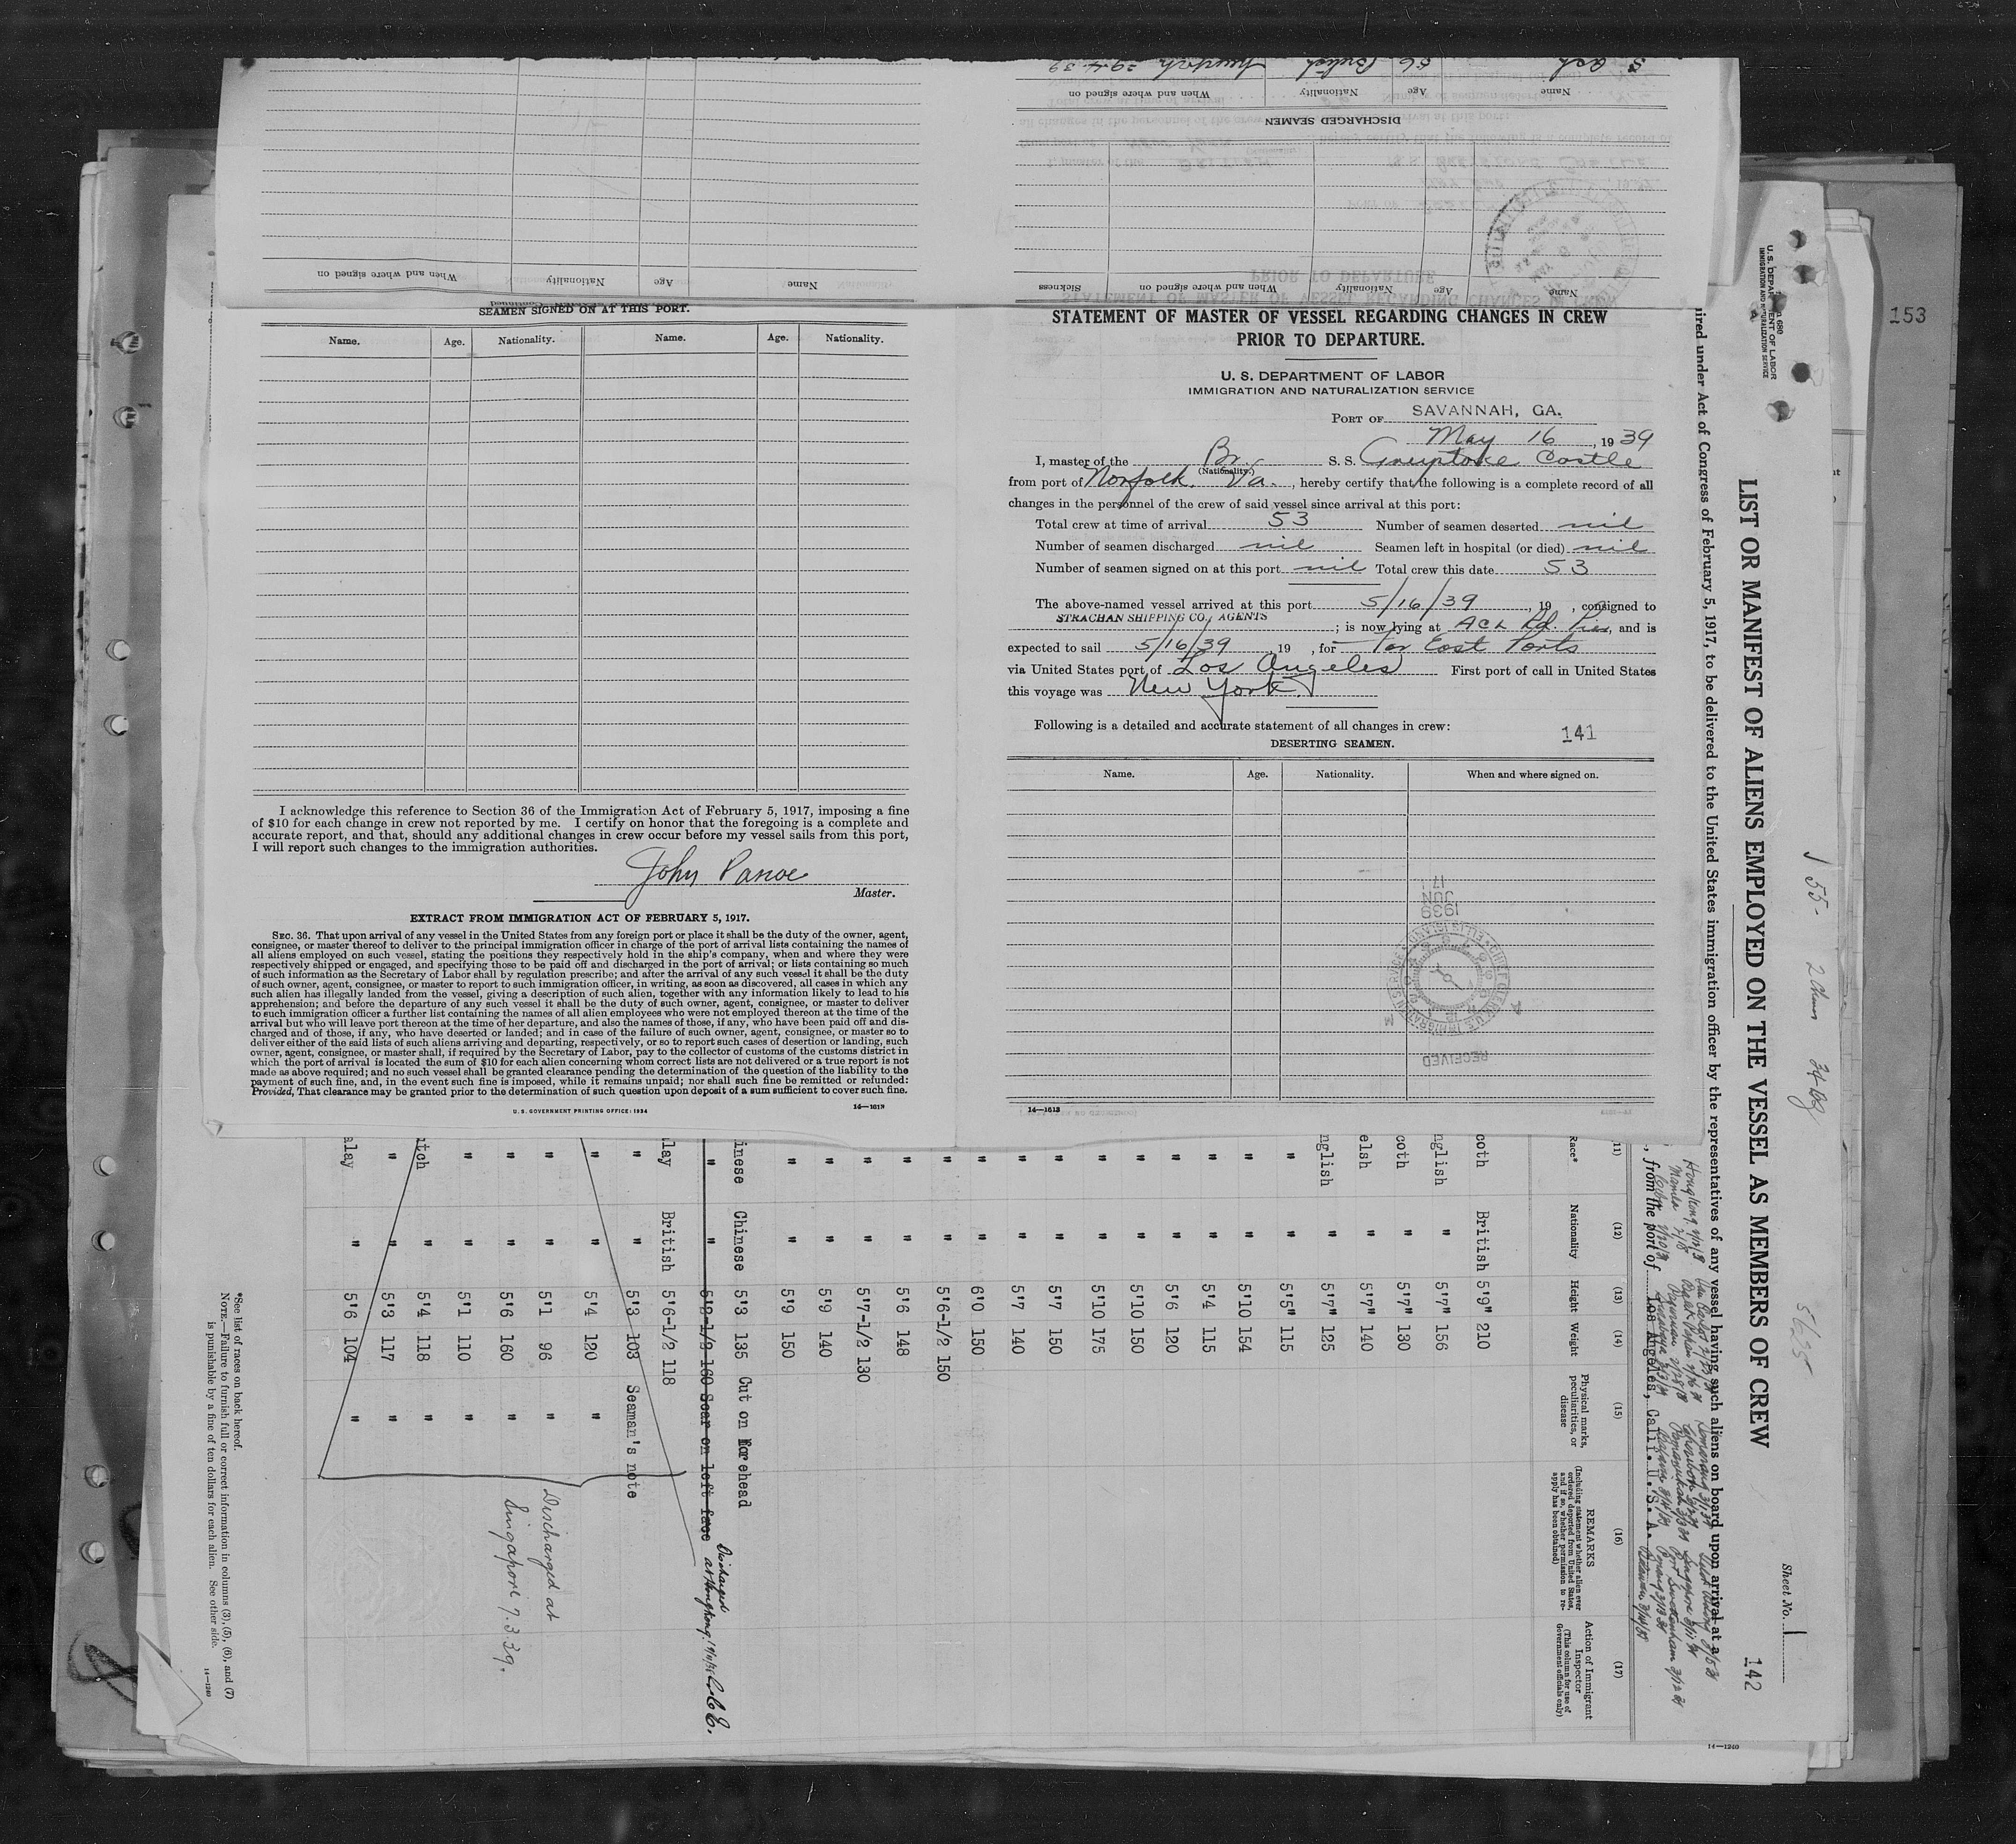 Name
Age
Nationality
When and where signed on
DISCHARGED SEAMEN
Name
Age
Nationality
When and where signed on
Sickness
Name
Age
Nationality
When and where signed on
SEAMEN SIGNED ON AT THIS PORT.
Name. Age. Nationality. Name. Age. Nationality.
I acknowledge this reference to Section 36 of the Immigration Act of February 5, 1917, imposing a fine
of $10 for each change in crew not reported by me. I certify on honor that the foregoing is a complete and
accurate report, and that, should any additional changes in crew occur before my vessel sails from this port,
I will report such changes to the immigration authorities.
John
Master.
EXTRACT FROM IMMIGRATION ACT OF FEBRUARY 5, 1917.
SEC. 36. That upon arrival of any vessel in the United States from any foreign port or place it shall be the duty of the owner, agent,
consignee, or master thereof to deliver to the principal immigration officer in charge of the port of arrival lists containing the names of
all aliens employed on such vessel, stating the positions they respectively hold in the ship's company, when and where they were
respectively shipped or engaged, and specifying those to be paid off and discharged in the port of arrival; or lists containing so much
of such information as the Secretary of Labor shall by regulation prescribe; and after the arrival of any such vessel it shall be the duty
of such owner, agent, consignee, or master to report to such immigration officer, in writing, as soon as discovered, all cases in which any
such alien has illegally landed from the vessel, giving a description of such alien, together with any information likely to lead to his
apprehension; and before the departure of any such vessel it shall be the duty of such owner, agent, consignee, or master to deliver
to such immigration officer a further list containing the names of all alien employees who were not employed thereon at the time of the
arrival but who will leave port thereon at the time of her departure, and also the names of those, if any, who have been paid off and dis-
charged and of those, if any, who have deserted or landed; and in case of the failure of such owner, agent, consignee, or master so to
deliver either of the said lists of such aliens arriving and departing, respectively, or so to report such cases of desertion or landing, such
owner, agent, consignee, or master shall, if required by the Secretary of Labor, pay to the collector of customs of the customs district in
which the port of arrival is located the sum of $10 for each alien concerning whom correct lists are not delivered or a true report is not
made as above required; and no such vessel shall be granted clearance pending the determination of the question of the liability to the
payment of such fine, and, in the event such fine is imposed, while it remains unpaid; nor shall such fine be remitted or refunded:
Provided, That clearance may be granted prior to the determination of such question upon deposit of a sum sufficient to cover such fine.
U. S. GOVERNMENT PRINTING OFFICE: 1934 14—1613
STATEMENT OF MASTER OF VESSEL REGARDING CHANGES IN CREW
PRIOR TO DEPARTURE.
U. S. DEPARTMENT OF LABOR
IMMIGRATION AND NATURALIZATION SERVICE
PORT OF SAVANNAH, GA.
May 16, 1939
I, master of the Br. S. S. Greystoke Castle
(Nationality.)
from port of Norfolk, Va., hereby certify that the following is a complete record of all
changes in the personnel of the crew of said vessel since arrival at this port:
Total crew at time of arrival 53 Number of seamen deserted nil
Number of seamen discharged nil Seamen left in hospital (or died) nil
Number of seamen signed on at this port nil Total crew this date 53
The above-named vessel arrived at this port 5/16/39, 19 , consigned to
STRACHAN SHIPPING CO., AGENTS ; is now lying at ACL Rd. Pier, and is
expected to sail 5/16/39, 19 , for Far East Ports
via United States port of Los Angeles First port of call in United States
this voyage was New York.
Following is a detailed and accurate statement of all changes in crew:
141
DESERTING SEAMEN.
Name. Age. Nationality. When and where signed on.
17
JUN
1939
CHIEF CLERK U.S. IMMIGRATION SERVICE ELLIS ISLAND
RECEIVED
14—1613
153
U. S. DEPARTMENT OF LABOR
IMMIGRATION AND NATURALIZATION SERVICE
Sheet No. 1
LIST OR MANIFEST OF ALIENS EMPLOYED ON THE VESSEL AS MEMBERS OF CREW
142
ired under Act of Congress of February 5, 1917, to be delivered to the United States immigration officer by the representatives of any vessel having such aliens on board upon arrival at a
, from the port of Los Angeles, Calif. U. S. A.
(11) (12) (13) (14) (15) (16) (17)
Race* Nationality Height Weight Physical marks, peculiarities, or disease
REMARKS (Including statement whether alien ever ordered deported from United States, and if so, whether permission to re-apply has been obtained)
Action of Immigrant Inspector (This column for use of Government officials only)
coth British 5'9" 210
nglish " 5'7" 156
coth " 5'7" 130
elsh " 5'7" 140
nglish " 5'7" 125
" " 5'5" 115
" " 5'10 154
" " 5'4 115
" " 5'6 120
" " 5'10 150
" " 5'10 175
" " 5'7 150
" " 5'7 140
" " 6'0 150
" " 5'6-1/2 150
" " 5'6 148
" " 5'7-1/2 130
" " 5'9 140
" " 5'9 150
inese Chinese 5'3 135 Cut on forehead
" " 5'2-1/2 160 Scar on left face Discharged at Hongkong
lay British 5'6-1/2 118
" " 5'3 103 Seaman's note
" " 5'4 120 "
" " 5'1 96 " Discharged at
" " 5'6 160 " Singapore 7.3.39.
" " 5'1 110
tch " 5'4 118 "
" " 5'3 117 "
alay " 5'6 104 "
*See list of races on back hereof.
NOTE.—Failure to furnish full or correct information in columns (3), (5), (6), and (7)
is punishable by a fine of ten dollars for each alien. See other side.
14—1240
14—1240